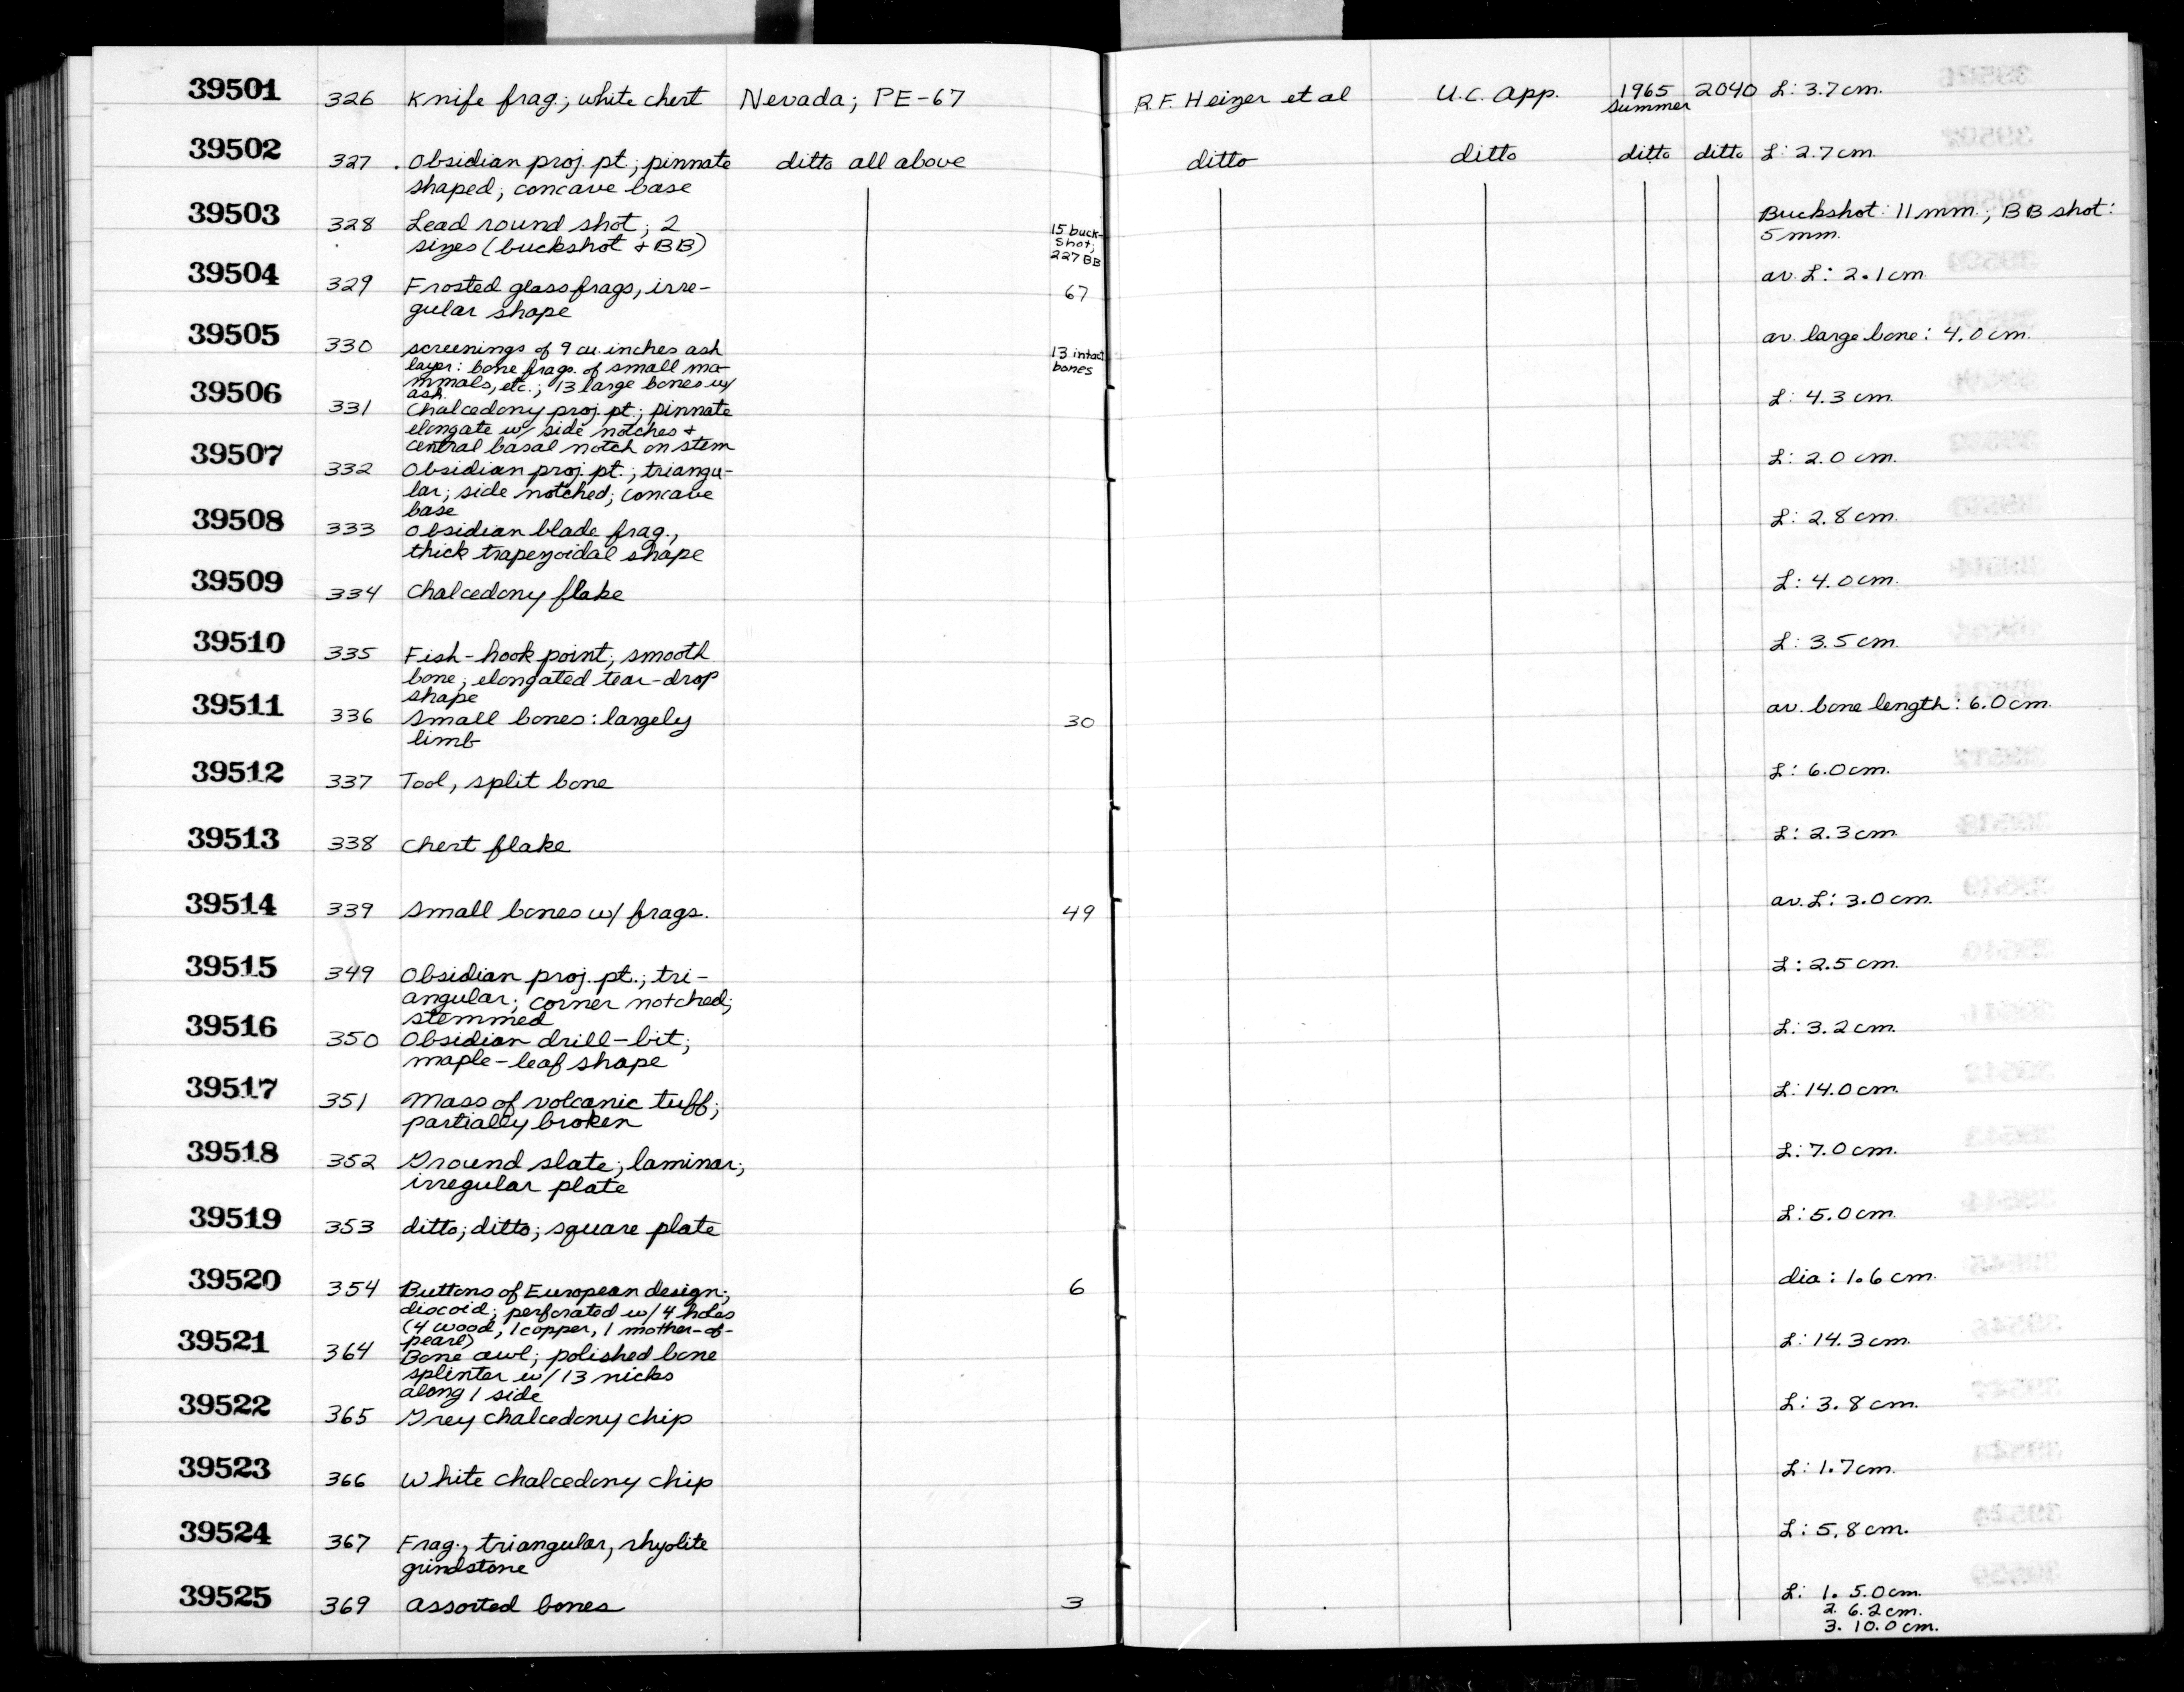 39501 326 Knife frag.; white chert Nevada; PE-67 R.F. Heizer et al U.C. App. 1965 2040 L: 3.7 cm.
summer
39502 327 . Obsidian proj. pt.; pinnate ditto all above ditto ditto ditto ditto L: 2.7 cm.
shaped; concave base
39503 328 Lead round shot; 2 15 buck- Buckshot: 11 mm.; BB shot:
sizes (buckshot + BB) shot; 5 mm.
227 BB
39504 329 Frosted glass frags, irre- 67 av. L: 2.1 cm
gular shape
39505 330 screenings of 9 cu. inches ash 13 intact av. large bone: 4.0 cm.
layer: bone frags. of small ma- bones
mmals, etc.; 13 large bones w/
ash.
39506 331 Chalcedony proj. pt.; pinnate L: 4.3 cm.
elongate w/ side notches +
central basal notch on stem
39507 332 Obsidian proj. pt.; triangu- L: 2.0 cm.
lar; side notched; concave
base
39508 333 Obsidian blade frag., L: 2.8 cm.
thick trapezoidal shape
39509 334 Chalcedony flake L: 4.0 cm.
39510 335 Fish-hook point; smooth L: 3.5 cm.
bone; elongated tear-drop
shape
39511 336 Small bones: largely 30 av. bone length: 6.0 cm.
limb
39512 337 Tool, split bone L: 6.0 cm.
39513 338 Chert flake L: 2.3 cm.
39514 339 Small bones w/ frags. 49 av. L: 3.0 cm.
39515 349 Obsidian proj. pt.; tri- L: 2.5 cm.
angular; corner notched;
stemmed
39516 350 Obsidian drill-bit; L: 3.2 cm.
maple-leaf shape
39517 351 Mass of volcanic tuff; L: 14.0 cm.
partially broken
39518 352 Ground slate; laminar; L: 7.0 cm.
irregular plate
39519 353 ditto; ditto; square plate L: 5.0 cm.
39520 354 Buttons of European design; 6 dia: 1.6 cm.
discoid; perforated w/ 4 holes
(4 wood, 1 copper, 1 mother-of-
pearl)
39521 364 Bone awl; polished bone L: 14.3 cm.
splinter w/ 13 nicks
along 1 side
39522 365 Grey chalcedony chip L: 3.8 cm.
39523 366 White chalcedony chip L: 1.7 cm.
39524 367 Frag., triangular, rhyolite L: 5.8 cm.
grindstone
39525 369 Assorted bones 3 L: 1. 5.0 cm.
2. 6.2 cm.
3. 10.0 cm.